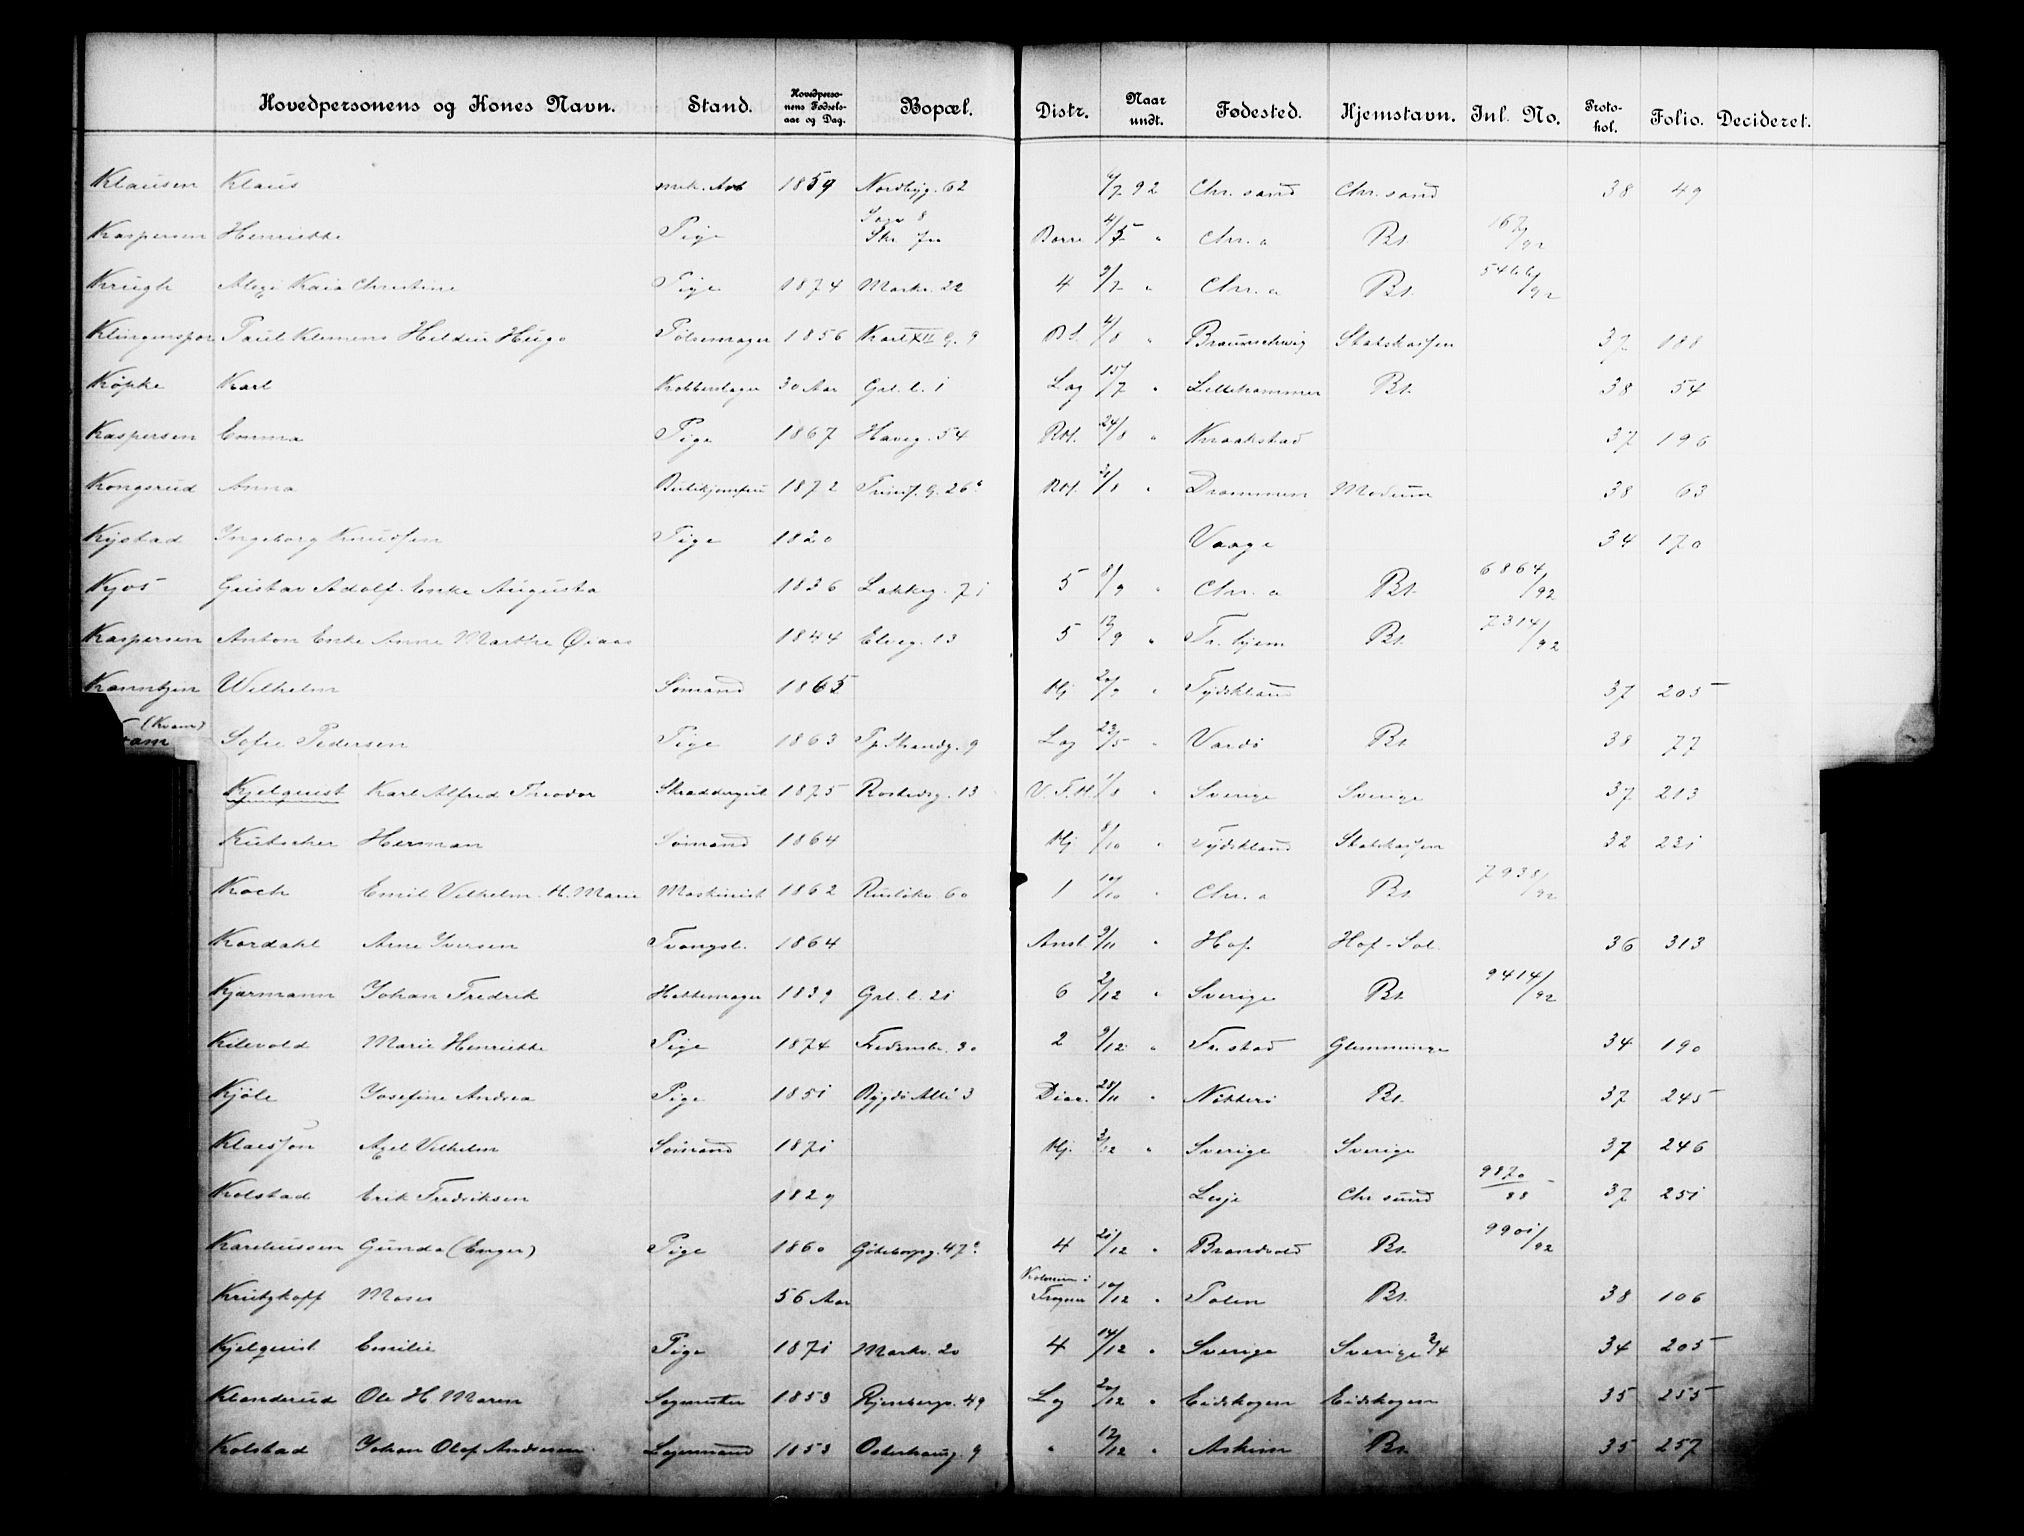 Hovedpersonens og Kones Navn. Stand. Hovedpersonens Fødselsaar og Dag. Bopæl. Distr. Naar undt. Fødested. Hjemstavn. Inl. No. Protokol. Folio. Decideret.
Klausen Klaus mek. Arb 1859 Nordbyg. 62 92 Chr. sand Chr. sand 38 49
Kaspersen Henriette Pige Borre 4/5 " Chr. a Bt. 167/92
Krugh Kaia Christine Pige 1874 Markv. 22 4 9/7 " Chr. a Bt. 5466/92
Klingenspor Paul Klemens Hugo Pølsemager 1856 Karl XII G. 9 4/8 " Braunschweig Statskassen 37 188
Køpke Karl Kobberslager 30 Aar Grl. l. 1 Lag 15/7 " Lillehammer Bt. 38 54
Kaspersen Emma Pige 1867 Haveg. 54 24/8 " Kraakstad 37 196
Kongsrud Anna 1872 Trinsf. G. 26 " Drammen Modum 38 63
Kystad Ingeborg Knudsen Pige 1820 Vaage 34 170
Kjos Gustav Adolf. Enke Augusta 1836 Lakkeg. 71 5 8/9 " Chr. a Bt. 6864/92
Kaspersen Anton Enke Anne Marthe 1844 Elveg. 13 5 12/9 " Tr. hjem Bt. 7314/92
Wilhelm Sømand 1865 Hj 20/9 " Tydskland 37 205
(Kvam)
Sofie Pedersen Pige 1863 Tp. Strandg. 9 Lag 23/5 " Vardö Bt. 38 77
Kjelquist Karl Alfred Theodor Skrædder 1875 Rostedsg. 13 1/8 " Sverige Sverige 37 213
Kutscher Herman Sømand 1864 Hj 8/10 " Tydskland Statskassen 32 221
Koch Emil Vilhelm. H. Marie Maskinist 1862 Ruselökv 60 1 10/10 " Chr. a Bt. 7938/92
Kordahl Arne Iversen Tvangsl. 1864 Anst 9/11 " Hof Hof-Sol. 36 313
Kjærmann Johan Fredrik Hattemager 1839 Grl. l. 21 6 2/12 " Sverige Bt. 9414/92
Kilevold Marie Henriette Pige 1874 Fredensb. 30 2 9/12 " Fr. stad Glemminge 34 190
Kjøle Josefine Andrea Pige 1851 Bygdö Allé 3 Diac. 28/11 " Nötterö Bt. 37 245
Klaesson Axel Vilhelm Sömand 1871 Hj. 3/12 " Sverige Sverige 37 246
Kolstad Erik Fredriksen 1829 Lesje Chr sund 9870/88 37 251
Kareliussen Gunda (Enger) Pige 1860 Göteborgg. 47 4 21/12 " Brandvold Bt. 9901/92
Moses 56 Aar Kolonien i Frogner 10/12 " Polen Bt. 38 106
Kjelquist Emilie Pige 1871 Markv. 20 4 14/12 " Sverige Sverige 2/4 34 205
Klanderud Ole H. Maren Sagmester 1853 49 Lag 20/12 " Eidskogen Eidskogen 35 255
Kolstad Johan Olof Andersen 1853 Osterhaug. 9 " 12/12 " Askim Bt. 35 257